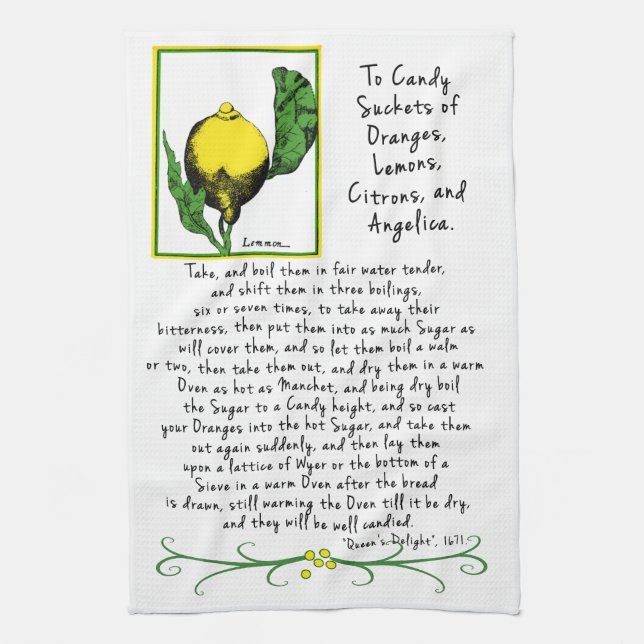 To Candy
Suckets of
Oranges,
Lemons,
Citrons, and
Angelica.
Lemmon
Take, and boil them in fair water tender,
and shift them in three boilings,
six or seven times, to take away their
bitterness, then put them into as much Sugar as
will cover them, and so let them boil a walm
or two, then take them out, and dry them in a warm
Oven as hot as Manchet, and being dry boil
the Sugar to a Candy height, and so cast
your Oranges into the hot Sugar, and take them
out again suddenly, and then lay them
upon a lattice of Wyer or the bottom of a
Sieve in a warm Oven after the bread
is drawn, still warming the Oven till it be dry,
and they will be well candied.
"Queen's Delight", 1671.